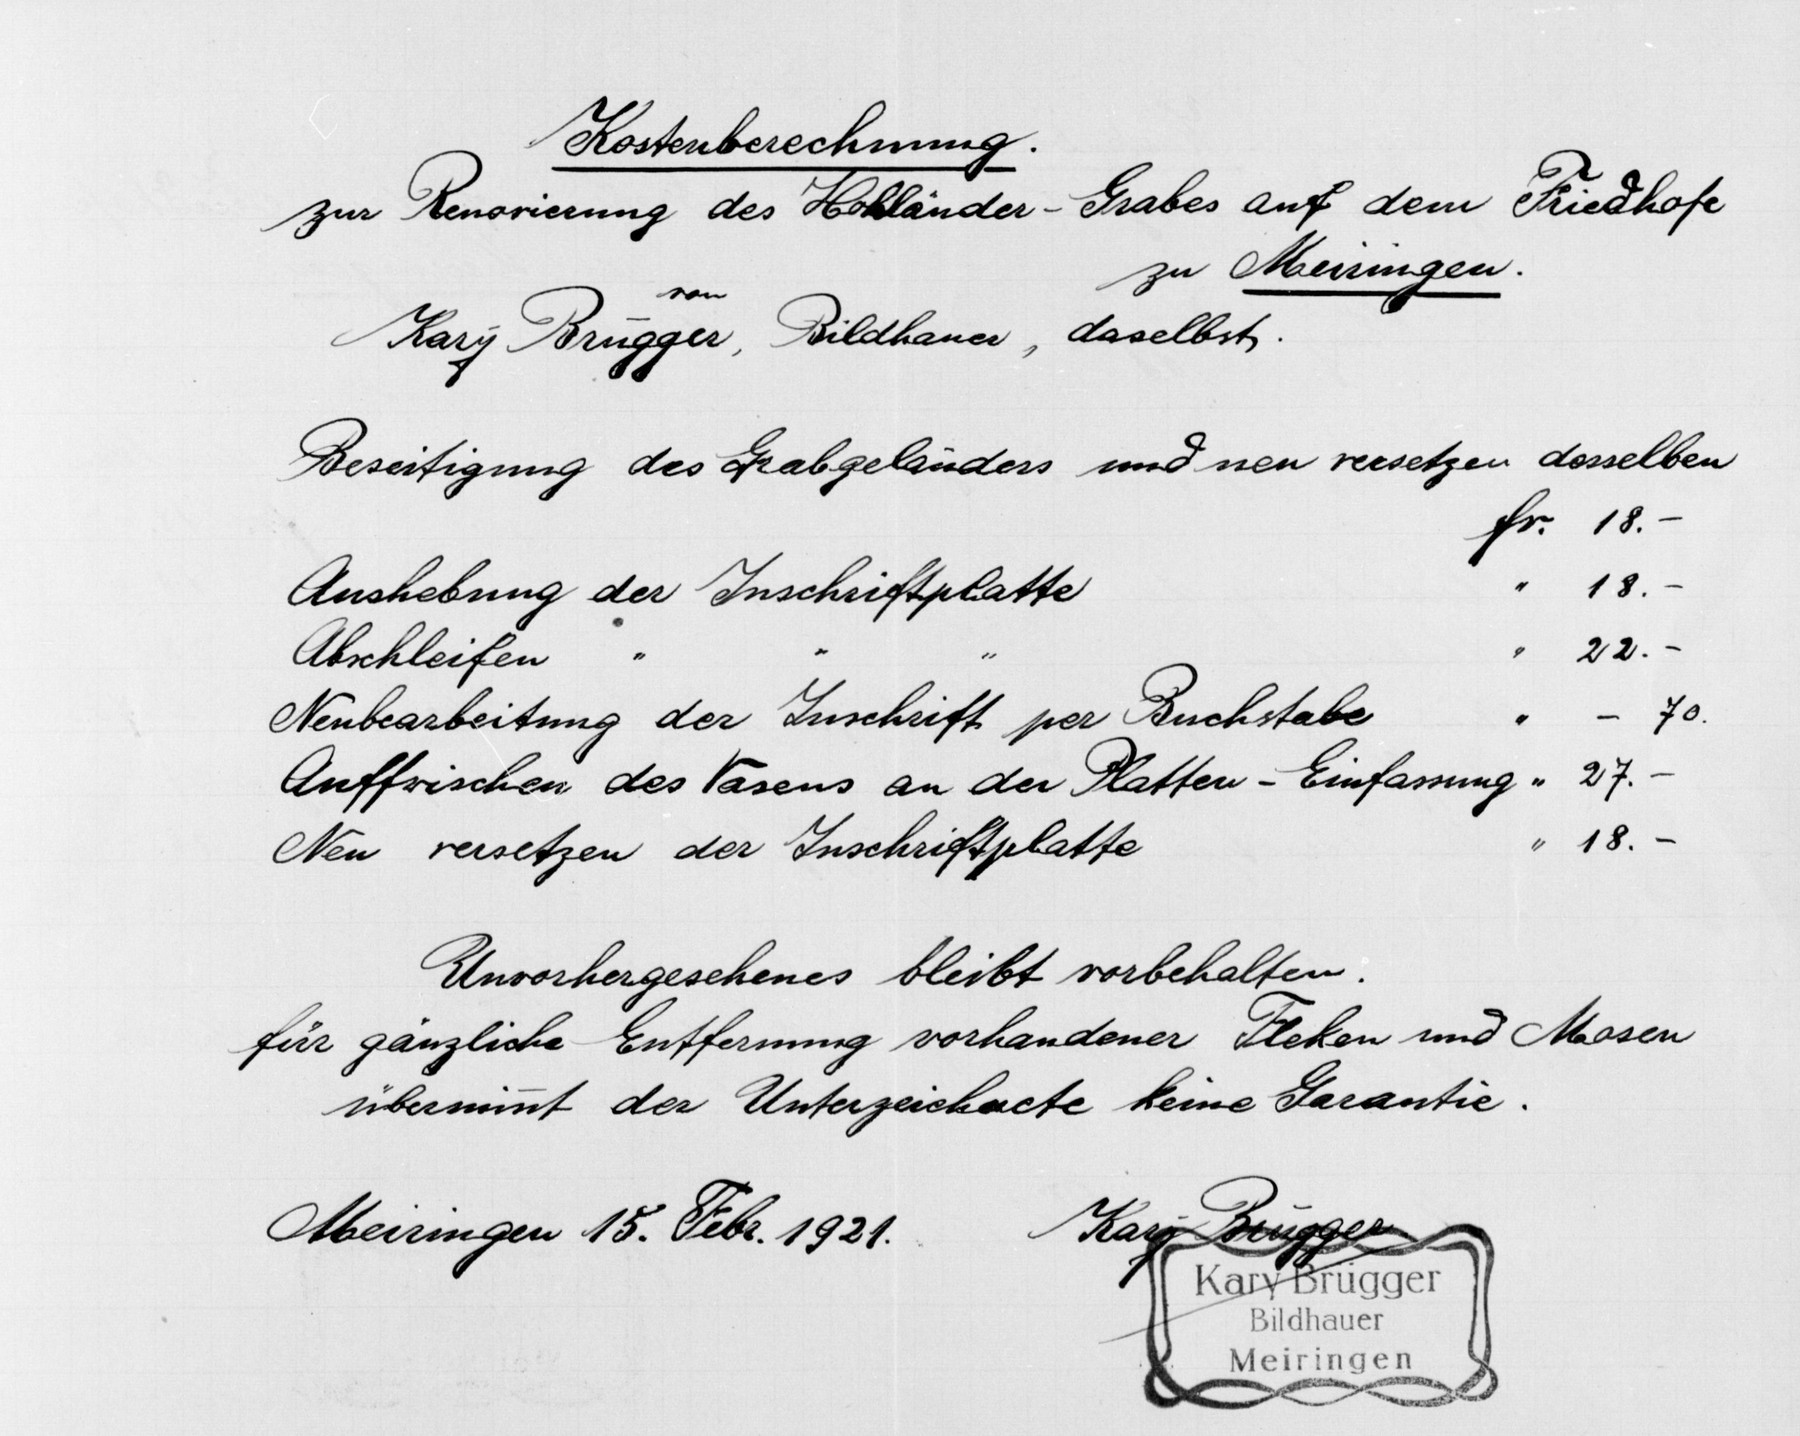 Kostenberechnung.
zur Renovierung des Holländer-Grabes auf dem Friedhofe
zu Meiringen.
von
Kary Brügger, Bildhauer, daselbst.
Beseitigung des Grabgeländers und neu versetzen desselben
fr. 18.-
Aushebung der Inschriftplatte " 18.-
Abschleifen " " " " 22.-
Neubearbeitung der Inschrift per Buchstabe " - 70.
Auffrischen des Vasens an der Platten-Einfassung " 27.-
Neu versetzen der Inschriftplatte " 18.-
Unvorhergesehenes bleibt vorbehalten.
für gänzliche Entfernung vorhandener Fleken und Mosen
übernim̄t der Unterzeichnete keine Garantie.
Meiringen 15. Febr. 1921. Kary Brügger
Kary Brügger
Bildhauer
Meiringen